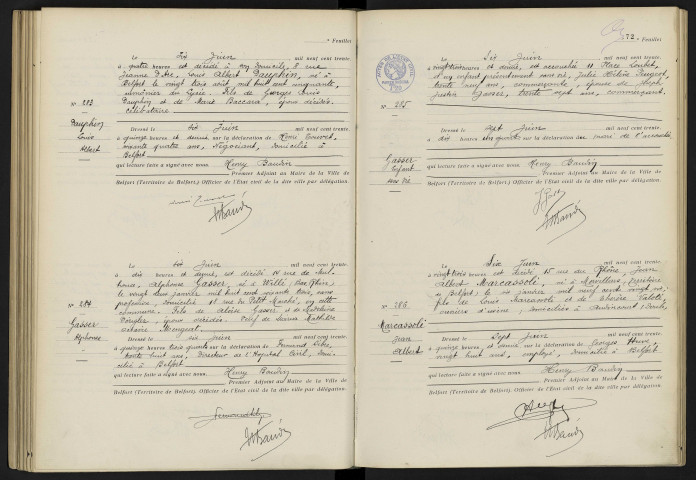 Feuillet
Le six Juin mil neuf cent trente,
à quatre heures est décédé à son domicile, 8 rue
Jeanne d'Arc, Louis Albert Dauphin, né à
Belfort le vingt trois août mil huit cent cinquante,
de Georges Louis
Dauphin et de Marie Baccara, époux décédés.
Célibataire
N° 283
Dauphin
Louis
Albert
Dressé le six Juin mil neuf cent trente,
à quinze heures sur la déclaration de
soixante quatre ans, Négociant, domicilié à
Belfort
qui lecture faite a signé avec nous, Henry Baudin
Premier Adjoint au Maire de la Ville de
Belfort (Territoire de Belfort,) Officier de l'Etat civil de la dite ville par délégation.
Le six Juin mil neuf cent trente,
à dix heures est décédé 14 rue de Mul-
house, Alphonse Gasser, né à Willé (Bas Rhin)
le vingt deux janvier mil huit cent soixante trois, sans
profession, domicilié 18 rue du Petit Marché, en cette
commune. Fils de Aloïse Gasser et de
époux décédés. Veuf de Mathilde
N° 284
Gasser
Alphonse
Dressé le six Juin mil neuf cent trente,
à quinze heures trois quarts sur la déclaration de Fernand
trente huit ans, Directeur de l'Hôpital Civil, domi-
cilié à Belfort
qui lecture faite a signé avec nous, Henry Baudin
Premier Adjoint au Maire de la Ville de
Belfort (Territoire de Belfort,) Officier de l'Etat civil de la dite ville par délégation.
172 Feuillet
Le Six Juin mil neuf cent trente,
à vingt trois heures est accouchée 11 Place
d'un enfant présentement sans vie, Julie Hélène Peugeot,
trente neuf ans, commerçante, épouse de
Gasser, trente sept ans, commerçant.
N° 285
Gasser
enfant
sans vie
Dressé le sept Juin mil neuf cent trente,
à dix heures un quart sur la déclaration du mari de l'accouchée
qui lecture faite a signé avec nous, Henry Baudin
Premier Adjoint au Maire de la Ville de
Belfort (Territoire de Belfort,) Officier de l'Etat civil de la dite ville par délégation.
Le Six Juin mil neuf cent trente,
à vingt trois heures est décédé 15 rue du Rhône, Jean
Albert Marcassoli, né à Morvillars, (Territoire
de Belfort) le six janvier mil neuf cent vingt
fils de Louis Marcassoli et de
ouvriers d'usine, domiciliés à Audincourt (Doubs)
N° 286
Marcassoli
Jean
Albert
Dressé le Sept Juin mil neuf cent trente,
à quinze heures sur la déclaration de Georges
vingt huit ans, employé, domicilié à Belfort
qui lecture faite a signé avec nous, Henry Baudin
Premier Adjoint au Maire de la Ville de
Belfort (Territoire de Belfort,) Officier de l'Etat civil de la dite ville par délégation.